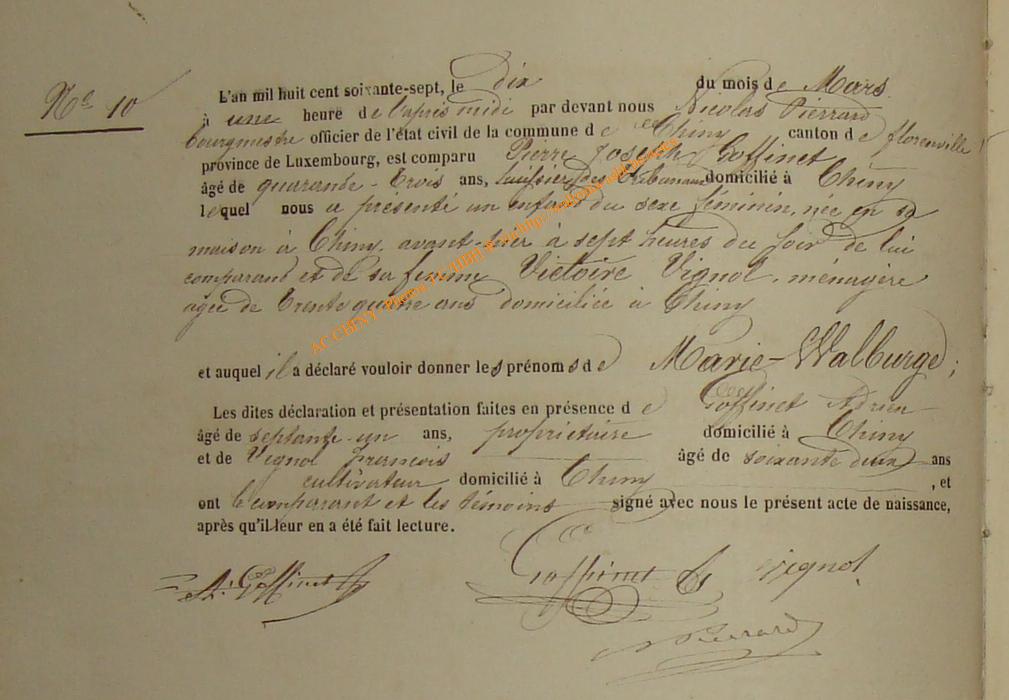 N° 10
L'an mil huit cent soixante-sept, le dix du mois de Mars
à une heure de l'après midi par devant nous Nicolas Pierrard
bourgmestre officier de l'état civil de la commune de Chiny canton de florenville
province de Luxembourg, est comparu Pierre Joseph Goffinet
âgé de quarante-trois ans, huissier des tribunaux domicilié à Chiny
lequel nous a présenté un enfant du sexe féminin, née en sa
maison à Chiny, avant-hier à sept heures du soir de lui
comparant et de sa femme Victoire Vignol, ménagère
agée de trente quatre ans domiciliée à Chiny
et auquel il a déclaré vouloir donner les prénoms de Marie-Walburge;
Les dites déclaration et présentation faites en présence de Goffinet Adrien
âgé de septante-un ans, propriétaire domicilié à Chiny
et de Vignol françois âgé de soixante deux ans
cultivateur domicilié à Chiny, et
ont le comparant et les témoins signé avec nous le présent acte de naissance,
après qu'il leur en a été fait lecture.
A. Goffinet Goffinet Vignol
N Pierrard